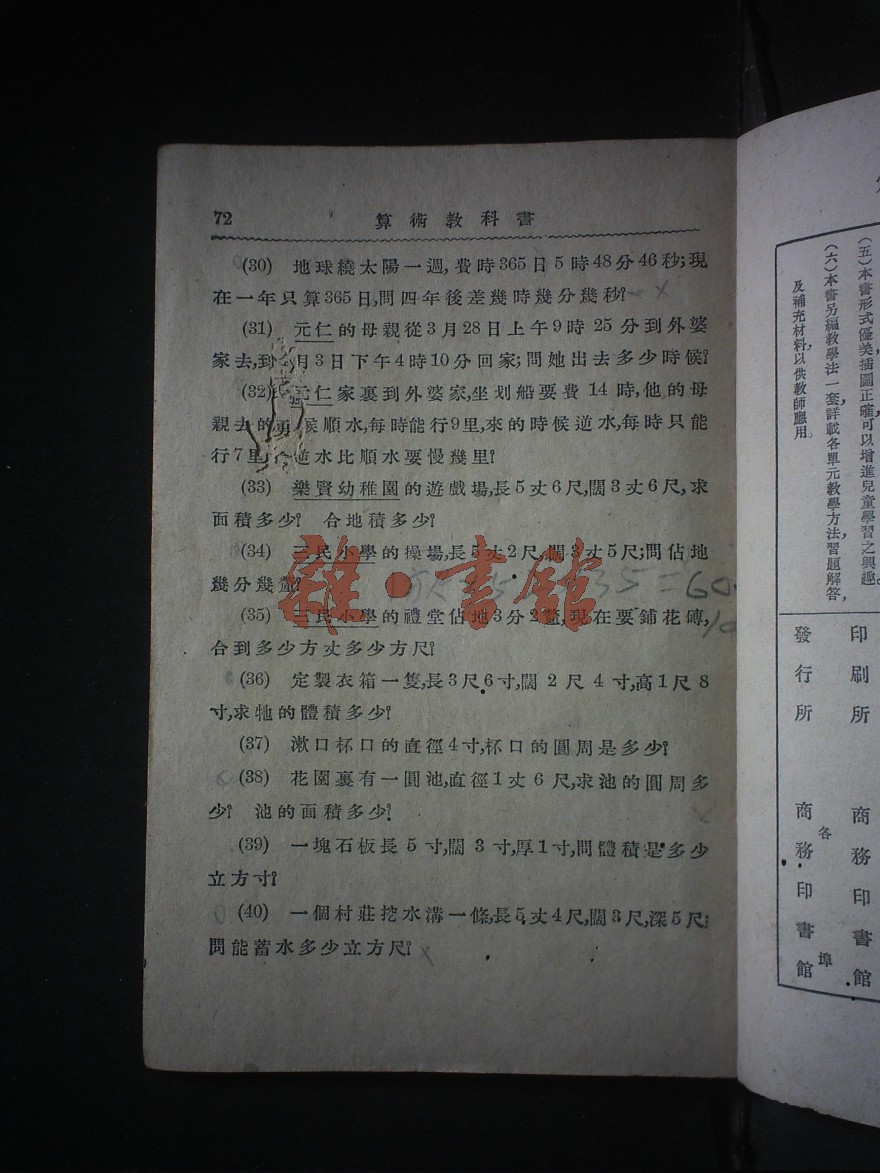 72 算術教科書
(30) 地球繞太陽一週,費時365日5時48分46秒;現
在一年只算365日,問四年後差幾時幾分幾秒?
(31) 元仁的母親從3月28日上午9時25分到外婆
家去,到 月3日下午4時10分回家;問她出去多少時候?
(32) 元仁家裏到外婆家,坐划船要費14時,他的母
親去的 候順水,每時能行9里,來的時候逆水,每時只能
行7里, 逆水比順水要慢幾里?
(33) 樂賢幼稚園的遊戲場,長5丈6尺,闊3丈6尺,求
面積多少? 合地積多少?
(34) 三民小學的操場,長5丈2尺,闊3丈5尺;問佔地
幾分幾釐?
35=60
(35) 三民小學的禮堂佔地3分2釐,現在要鋪花磚,
合到多少方丈多少方尺?
(36) 定製衣箱一隻,長3尺6寸,闊2尺4寸,高1尺8
寸,求牠的體積多少?
(37) 漱口杯口的直徑4寸,杯口的圓周是多少?
(38) 花園裏有一圓池,直徑1丈6尺,求池的圓周多
少? 池的面積多少?
(39) 一塊石板長5寸,闊3寸,厚1寸,問體積是多少
立方寸?
(40) 一個村莊挖水溝一條,長5丈4尺,闊3尺,深5尺;
問能蓄水多少立方尺?
雜·書館
(五)本書形式優美插圖正確可以增進兒童學習之興趣。
(六)本書另編教學法一套,詳載各單元教學方法習題解答,
及補充材料,以供教師應用。
印刷所 商務印書館
發行所 各埠 商務印書館